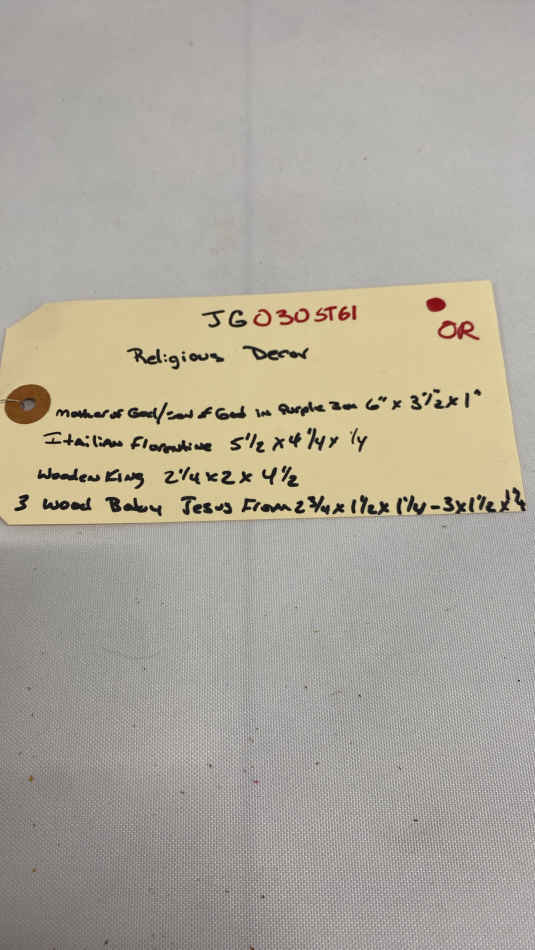 JG030ST61
OR
Religious Decor
Mother of God/son of God in Purple Box 6" x 3 1/2" x 1"
Itailian Florentine 5 1/2 x 4 1/4 x 1/4
Wooden King 2 1/4 x 2 x 4 1/2
3 Wood Baby Jesus From 2 3/4 x 1 1/2 x 1 1/4 - 3 x 1 1/2 x